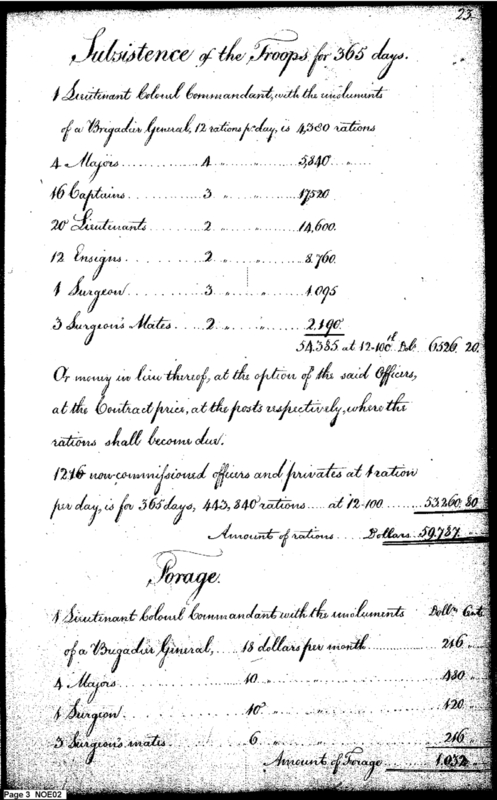 23.
Subsistence of the Troops for 365 days.
1 Lieutenant Colonel Commandant, with the emoluments
of a Brigadier General, 12 rations pr day, is 4,380 rations
4 Majors............ 4 .. .. 5,840 ..
16 Captains............ 3 .. .. 17520
20 Lieutenants............ 2 .. .. 14,600.
12 Ensigns............ 2 .. .. 8,760.
1 Surgeon............ 3 .. .. 1,095
3 Surgeon's Mates.. 2 .. .. 2,190.
54,385 at 12-100th Dols. 6526. 20.
Or money in lieu thereof, at the option of the said Officers,
at the Contract price, at the posts respectively, where the
rations shall become due.
1216 non-commissioned officers and privates at 1 ration
per day, is for 365 days, 443,840 rations.... at 12-100 ........ 53260. 80
Amount of rations.... Dollars.. 59,787. ..
Forage.
1 Lieutenant Colonel Commandant with the emoluments Dollrs Cents
of a Brigadier General, .... 18 dollars per month............ 216 ..
4 Majors............ 10 ............ 480 ..
1 Surgeon............ 10 ............ 120 ..
3 Surgeon's mates............ 6 ............ 216 ..
Amount of Forage............ 1,032 ..
Page 3 NOE02